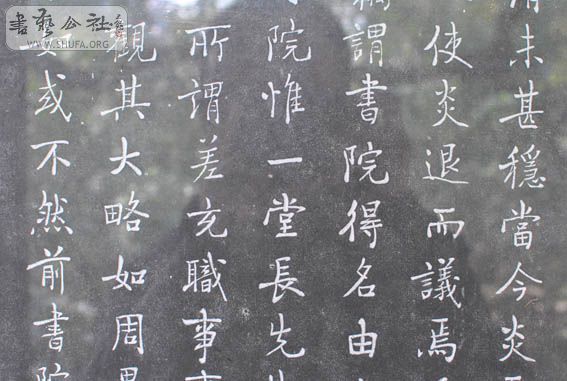 書藝公社
WWW.SHUFA.ORG
未甚穩當今炎
使炎退而議焉
謂書院得名由
院惟一堂長先
所謂差充職事
觀其大略如周
或不然前書院